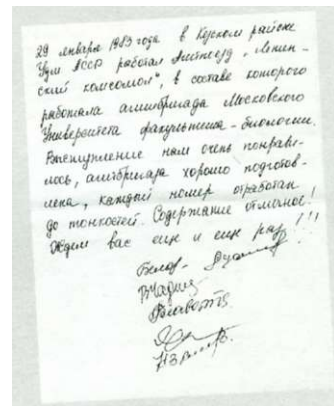 29 января 1983 года в Кезском районе
Удм АССР работал Агитпоезд „Ленин-
ский комсомол", в составе которого
работала агитбригада Московского
Университета факультета - биологии.
Выступление нам очень понрави-
лось, агитбригада хорошо подготов-
лена, каждый номер отработан
до тонкостей. Содержание отличное!
Ждем вас еще и еще раз!!!